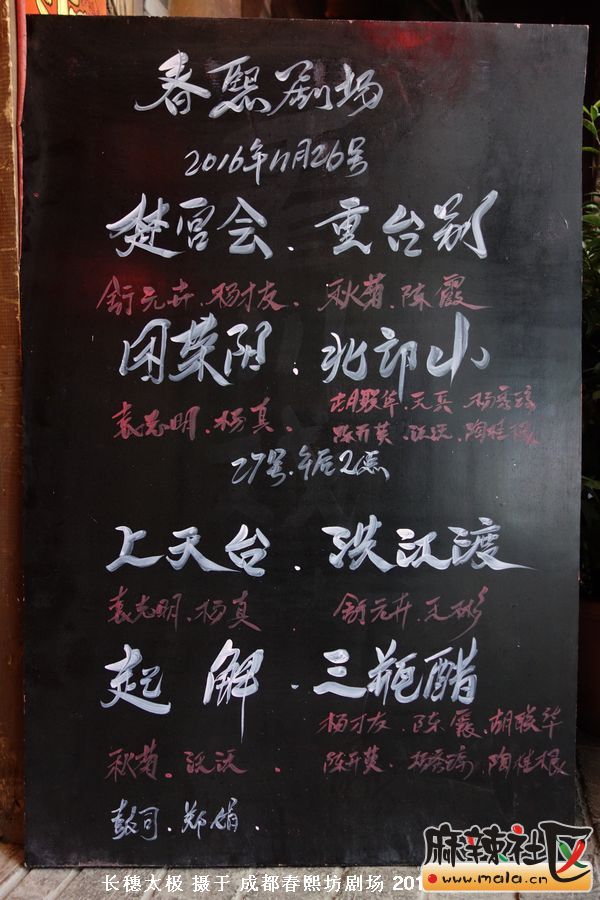 春熙剧场
2016年11月26号
楚宫会.重台别
舒元卉.杨才友. 秋菊.陈霞
团荣阴.北邙山
袁志明.杨真. 胡联华.天真.杨秀琼
陈开英.沃沃.陶桂根
27号.午后2点
上天台.洪江渡
袁志明.杨真 舒元卉.王彬
起解.三瓶醋
杨才友.陈霞.胡联华
秋菊.沃沃. 陈开英.杨秀琼.陶桂根
鼓司.郑娟.
麻辣社区
www.mala.cn
长穗太极 摄于 成都春熙坊剧场 201